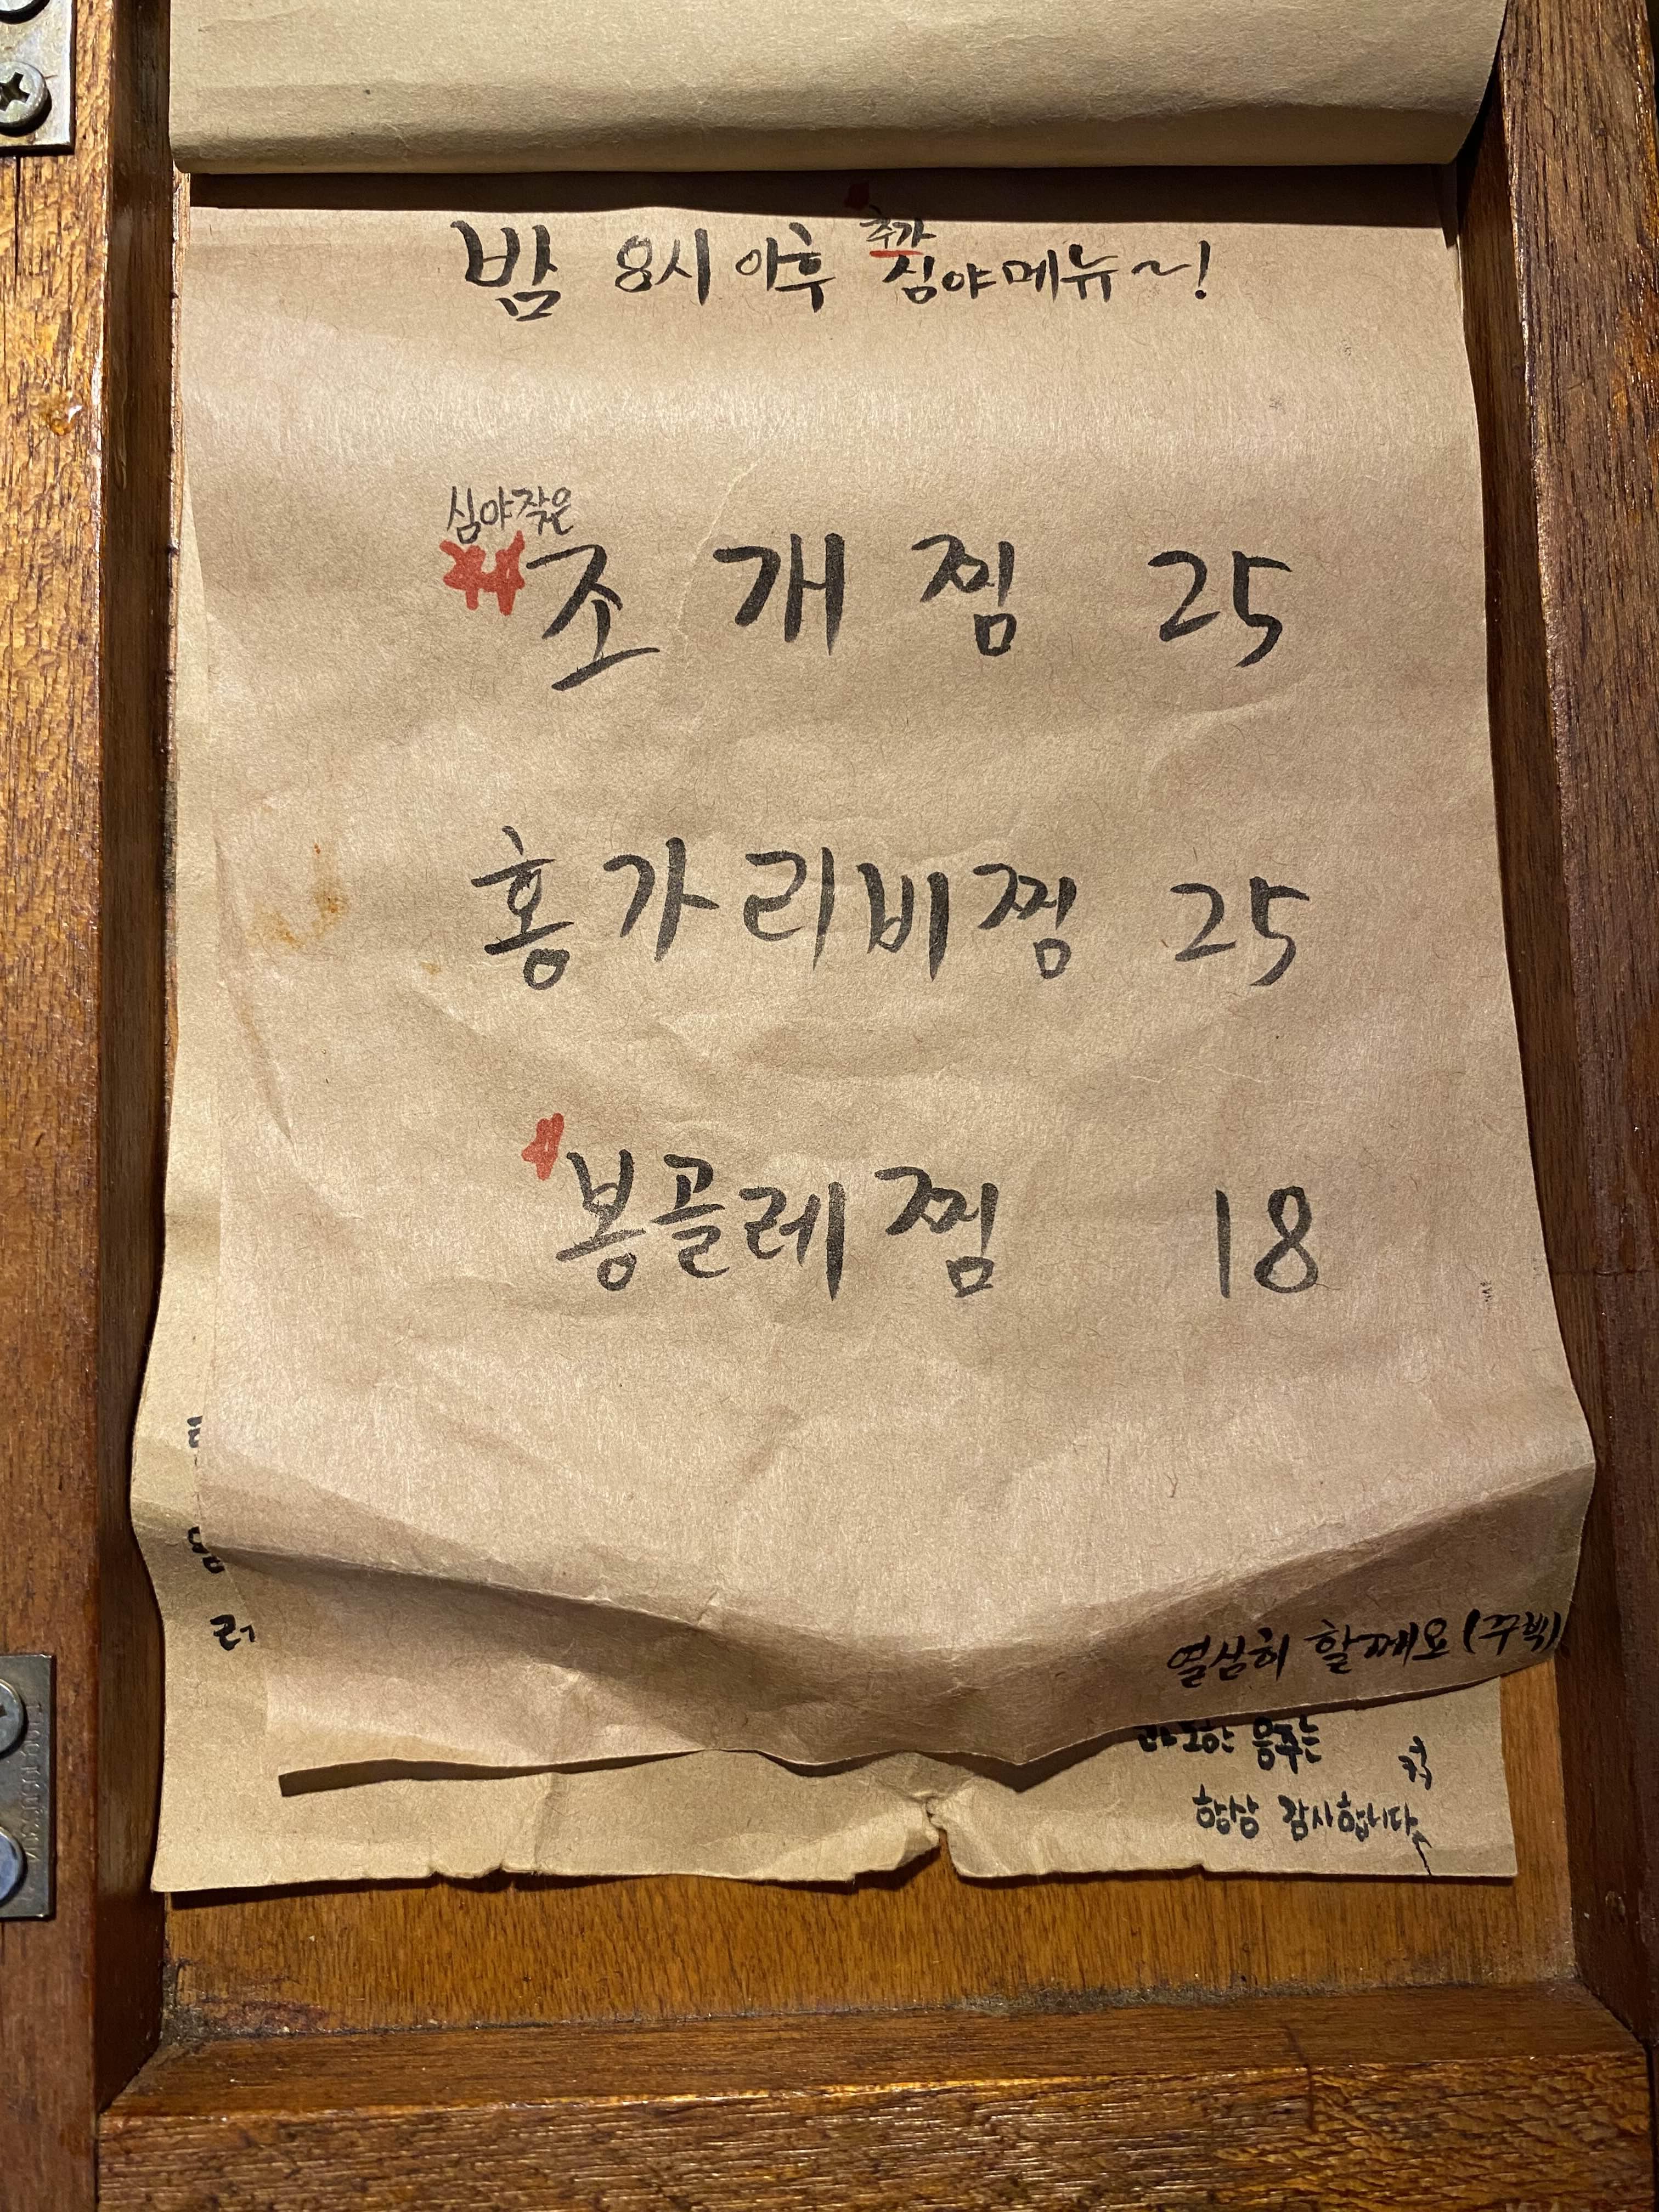 밤 8시 이후 추가 심야메뉴~!
심야작은
조개찜 25
홍가리비찜 25
봉골레찜 18
열심히 할께요 (꾸벅)
과도한 음주는
항상 감사합니다